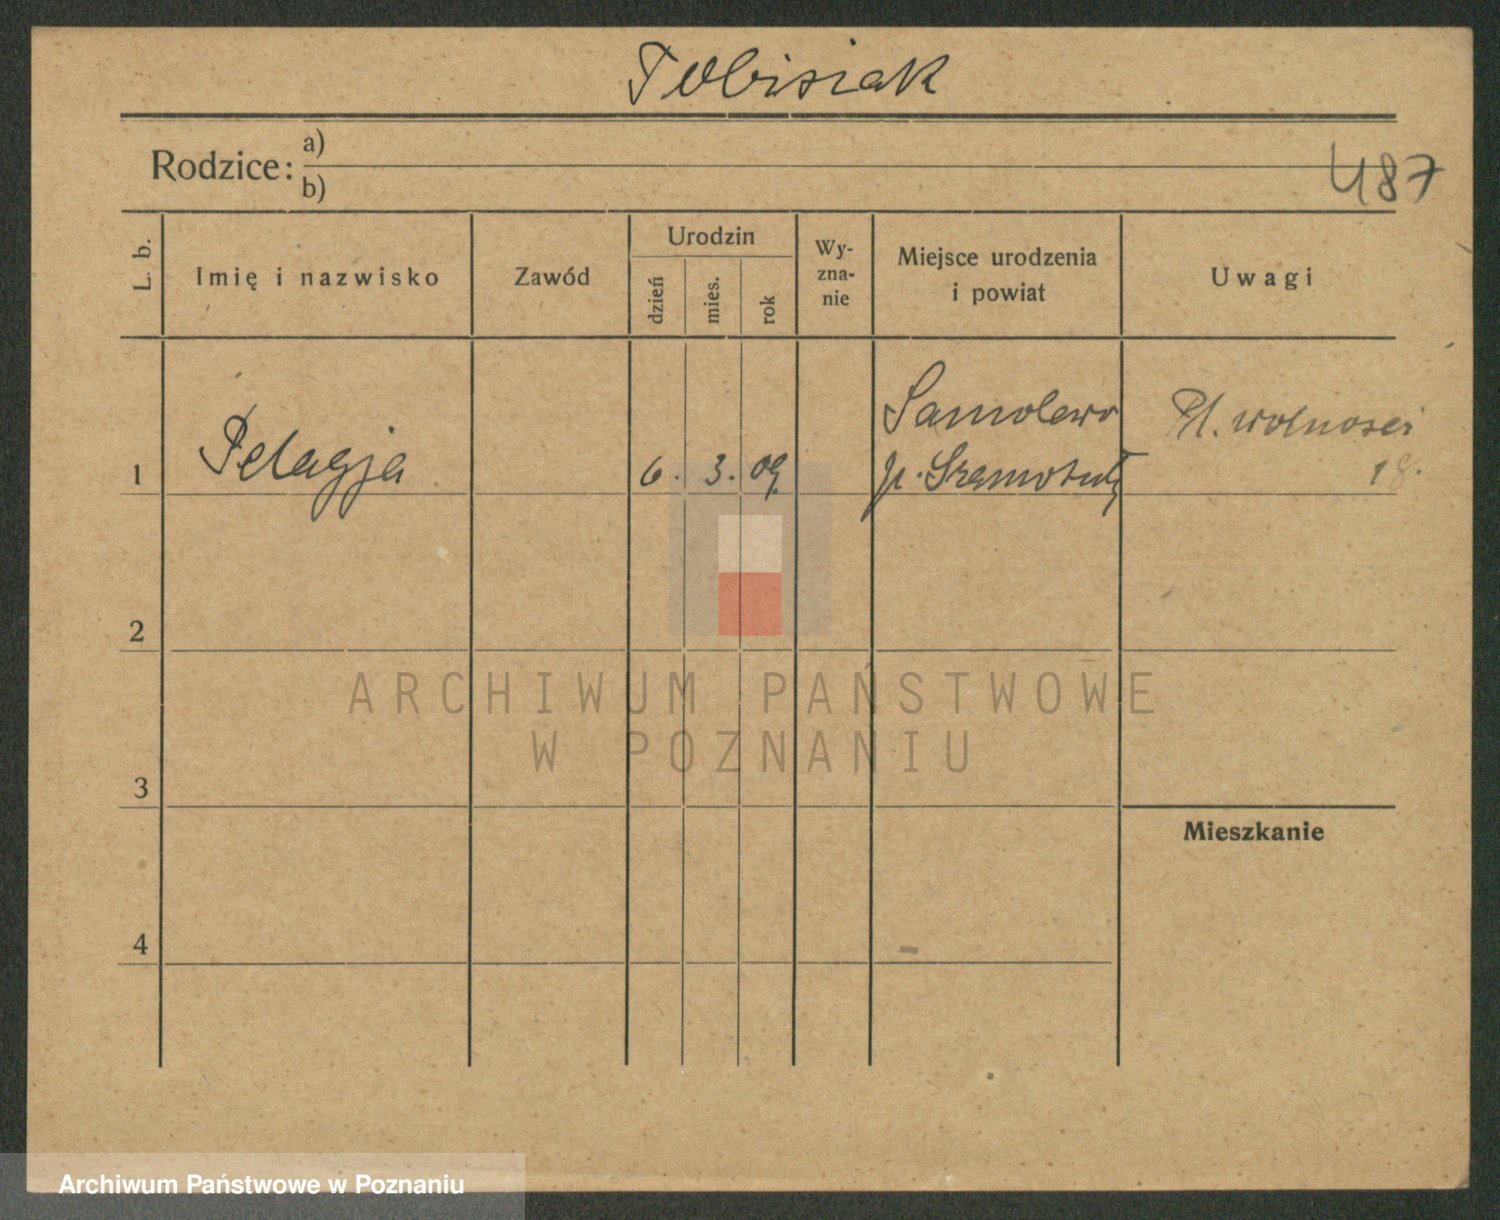 Tobisiak
Rodzice: a)
b)
487
L. b.
Imię i nazwisko
Zawód
Urodzin
dzień
mies.
rok
Wy-
zna-
nie
Miejsce urodzenia
i powiat
Uwagi
1
Pelagja
6. 3. 09.
Samolewo
p. Szamotuły
Pl. wolnosci
18.
2
3
4
Mieszkanie
ARCHIWUM PAŃSTWOWE
W POZNANIU
Archiwum Państwowe w Poznaniu